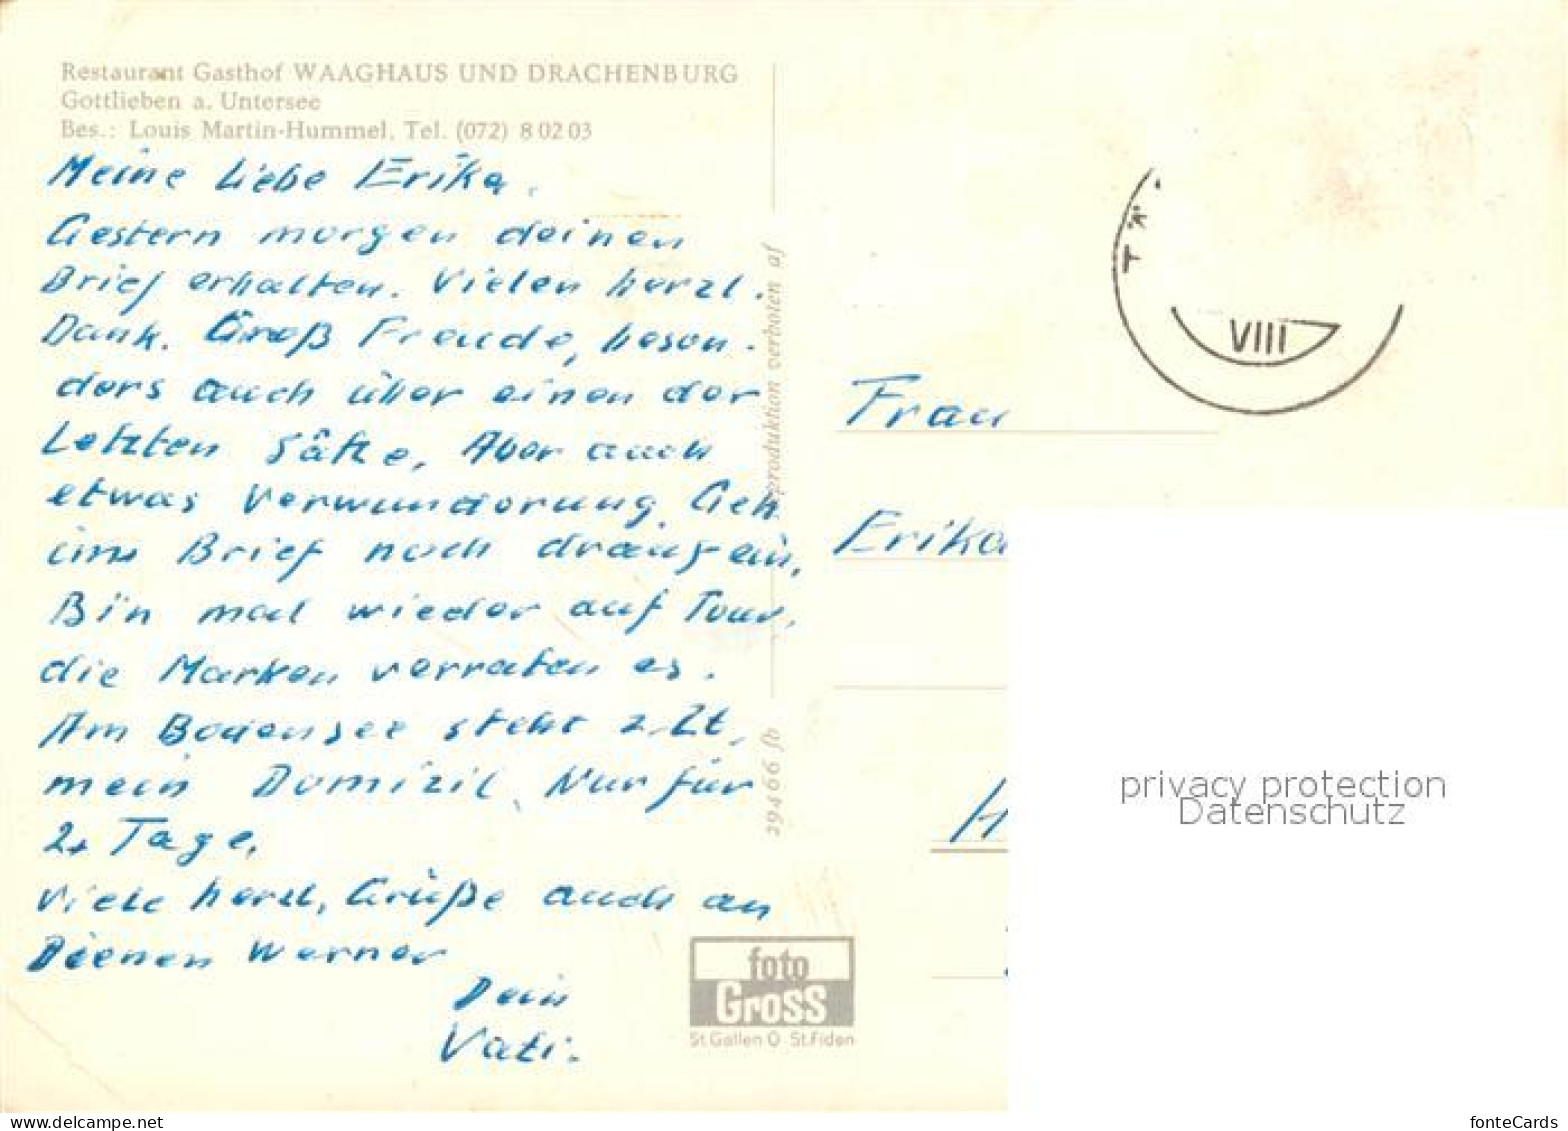 Restaurant Gasthof WAAGHAUS UND DRACHENBURG
Gottlieben a. Untersee
Bes.: Louis Martin-Hummel, Tel. (072) 8 02 03
Meine Liebe Erika.
Gestern morgen deinen
Brief erhalten. Vielen herzl.
Dank. Groß Freude, beson-
ders auch über einen der
Letzten Sätze. Aber auch
etwas Verwunderung. Geh
im Brief noch drauf ein.
Bin mal wieder auf Tour,
die Marken verraten es.
Am Bodensee steht z. Zt.
mein Domizil. Nur für
2 Tage.
Viele herzl. Grüße auch an
Deinen Werner
Dein
Vati.
29466 fb
produktion verboten af
foto
Gross
St. Gallen O St. Fiden
TÄ
VIII
Frau
Erika
H
privacy protection
Datenschutz
fonteCards